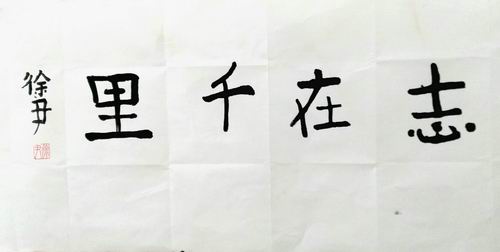 志在千里
徐尹